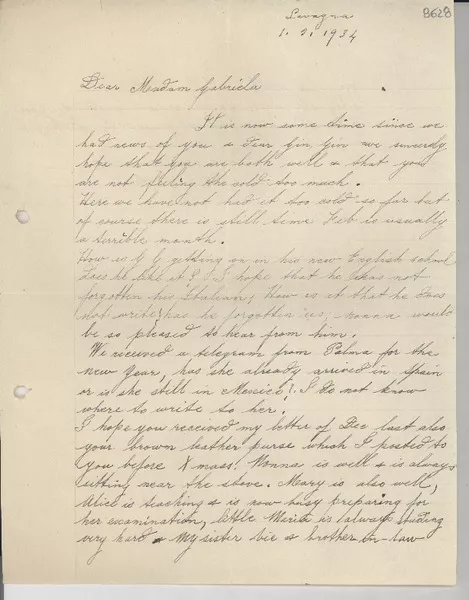 8628
Lavagna
1. 2. 1934
Dear Meadam Gabriela
It is now some time since we
had news of you & dear Gin Gin we sincerely
hope that you are both well & that you
are not feeling the cold too much.
Here we have not had it too cold so far but
of course there is still time Feb is usually
a terrible month.
How is G G getting on in his new English school
Does he like it? I hope that he has not
forgotten his Italian, How is it that he does
not write? has he forgotten us, nonna would
be so pleased to hear from him.
We received a telegram from Palma for the
new Year, has she already arrived in Spain
or is she still in Messico? I do not know
where to write to her.
I hope you received my letter of Dec last also
your brown leather purse which I posted to
you before Xmass. Nonna is well & is always
sitting near the stove. Mary is also well,
Alice is teaching & is now busy preparing for
her examination, little Maria is always studing
very hard My sister Vic & brother-in-law